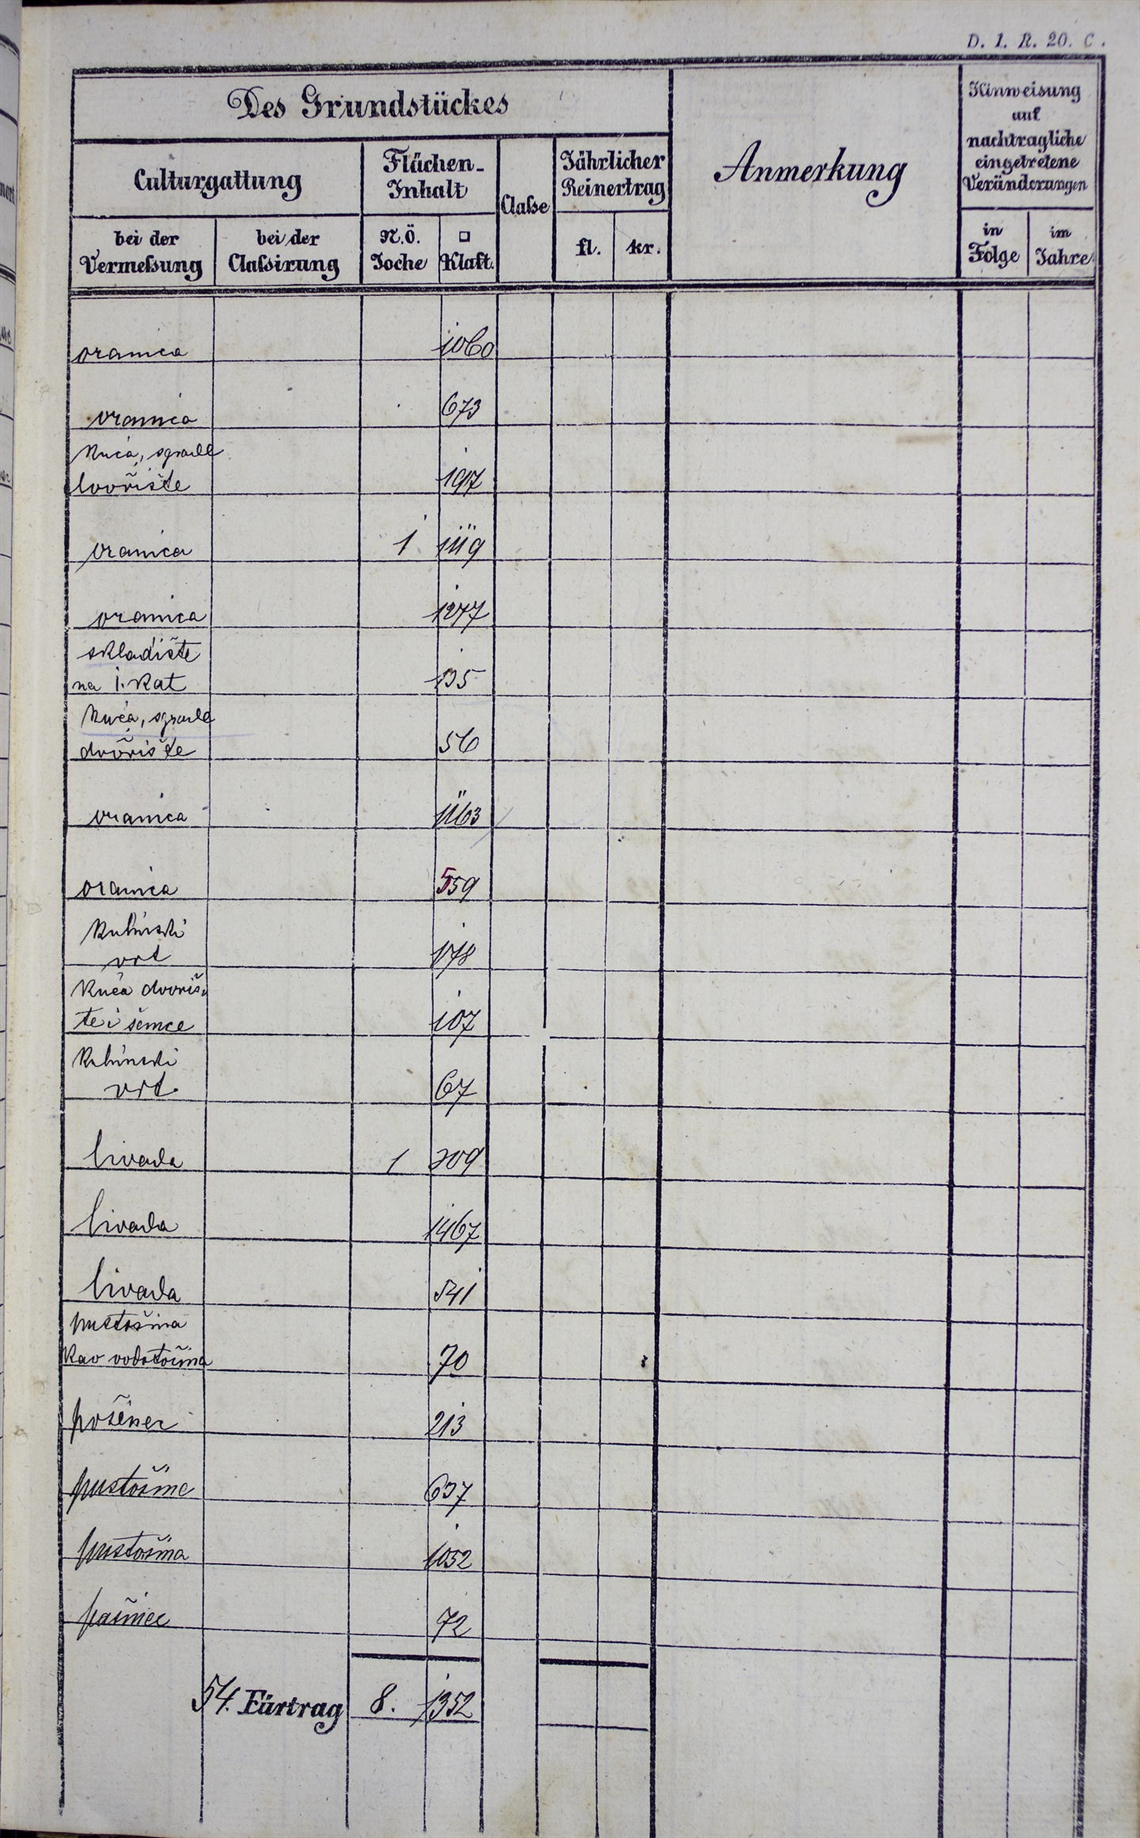 D. 1. R. 20. C.
Des Grundstückes
Anmerkung
Hinweisung
auf
nachtragliche
eingetretene
Veränderungen
Culturgattung
Flächen-
Inhalt
Claße
Jährlicher
Reinertrag
bei der
Vermeßung
bei der
Claßirung
N.Ö.
Joche
□
Klaft.
fl.
kr.
in
Folge
im
Jahre
oranica 1060
oranica 673
Kuća, sgrade
dvorište 197
oranica 1 1119
oranica 1277
skladište
na I. kat 135
Kuća, sgrade
dvorište 56
oranica 1163
oranica 559
Kuhinski
vrt 178
Kuća dvoriš-
te i 107
Kuhinski
vrt 67
livada 1 209
livada 1467
livada 541
pustošina
kao 70
213
637
pustošina 1052
pašnjac 72
54. Fürtrag 8. 1352